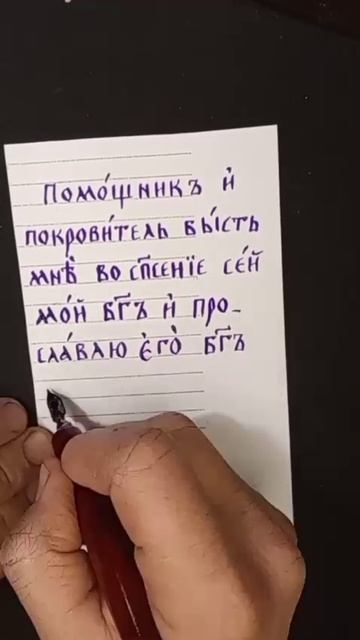 Помо́щникъ и҆
покрови́тель бы́сть
мнѣ̀ во сп҃сенїе се́й
мо́й бг҃ъ и҆ про-
сла́влю є҆го̀ бг҃ъ